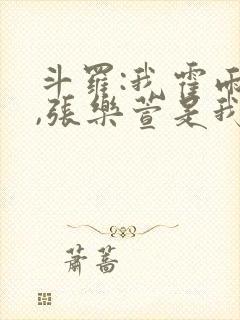 斗羅:我霍雨
,張樂萱是我
蕭蒿